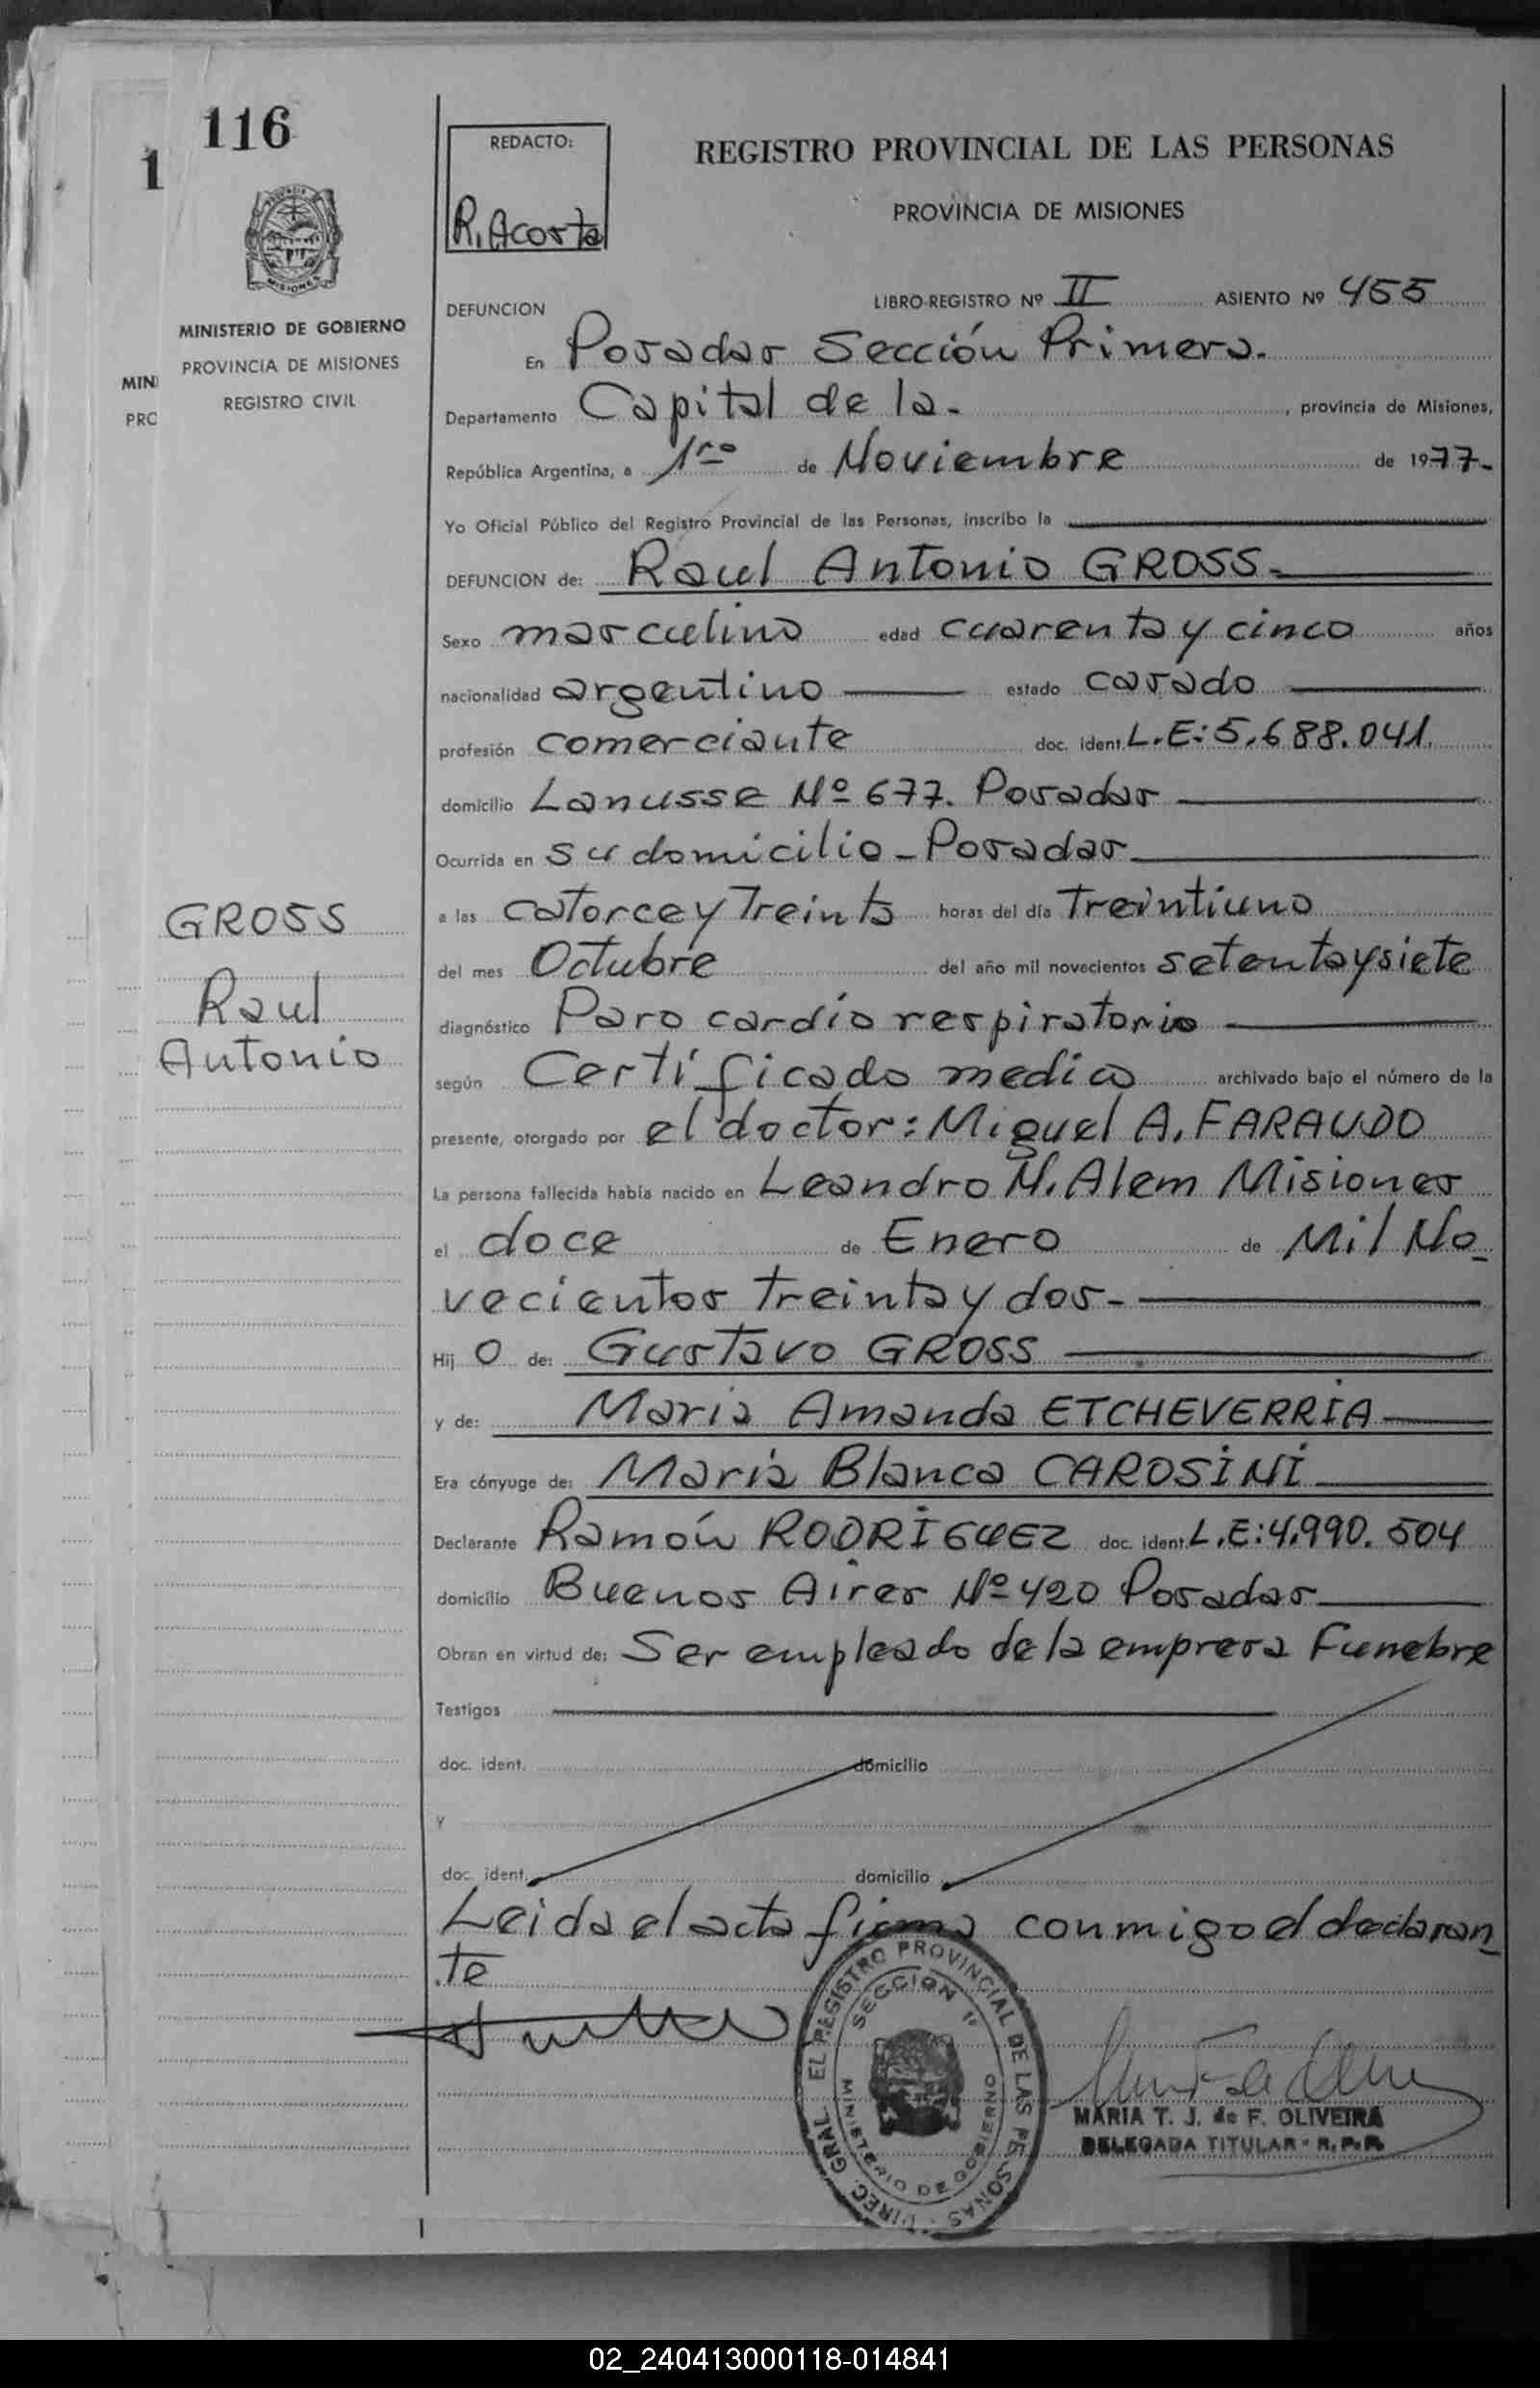 116
1
MINISTERIO DE GOBIERNO
PROVINCIA DE MISIONES
REGISTRO CIVIL
MIN
PRO
MISIONES
GROSS
Raul
Antonio
REDACTO:
R. Acosta
REGISTRO PROVINCIAL DE LAS PERSONAS
PROVINCIA DE MISIONES
DEFUNCION LIBRO-REGISTRO Nº II ASIENTO Nº 455
En Posadas Sección Primera.
Departamento Capital de la - , provincia de Misiones,
República Argentina, a 1ro de Noviembre de 1977-
Yo Oficial Público del Registro Provincial de las Personas, inscribo la
DEFUNCION de: Raul Antonio GROSS-
Sexo masculino edad cuarenta y cinco años
nacionalidad argentino estado casado
profesión comerciante doc. ident. L.E: 5.688.041
domicilio Lanusse Nº 677. Posadas
Ocurrida en su domicilio - Posadas
a las catorce y Treinta horas del día Treintiuno
del mes Octubre del año mil novecientos setenta y siete
diagnóstico Paro cardio respiratorio
según Certificado medico archivado bajo el número de la
presente, otorgado por el doctor: Miguel A. FARAUDO
La persona fallecida había nacido en Leandro N. Alem Misiones
el doce de Enero de Mil No-
vecientos treinta y dos-
Hij o de: Gustavo GROSS
y de: Maria Amanda ETCHEVERRIA
Era cónyuge de: Maria Blanca CAROSINI
Declarante Ramón RODRIGUEZ doc. ident. L.E: 4.990.504
domicilio Buenos Aires Nº 420 Posadas
Obran en virtud de: Ser empleado de la empresa Funebre
Testigos
doc. ident. domicilio
Y
doc. ident. domicilio
Leida el acta firma conmigo el declaran-
te
DIREC. GRAL. EL REGISTRO PROVINCIAL DE LAS PERSONAS
SECCION 1º
MINISTERIO DE GOBIERNO
MARIA T. J. de F. OLIVEIRA
DELEGADA TITULAR - R.P.P.
02_240413000118-014841